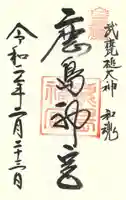 武甕槌大神 和魂
鹿島神宮
令和二年二月二十三日